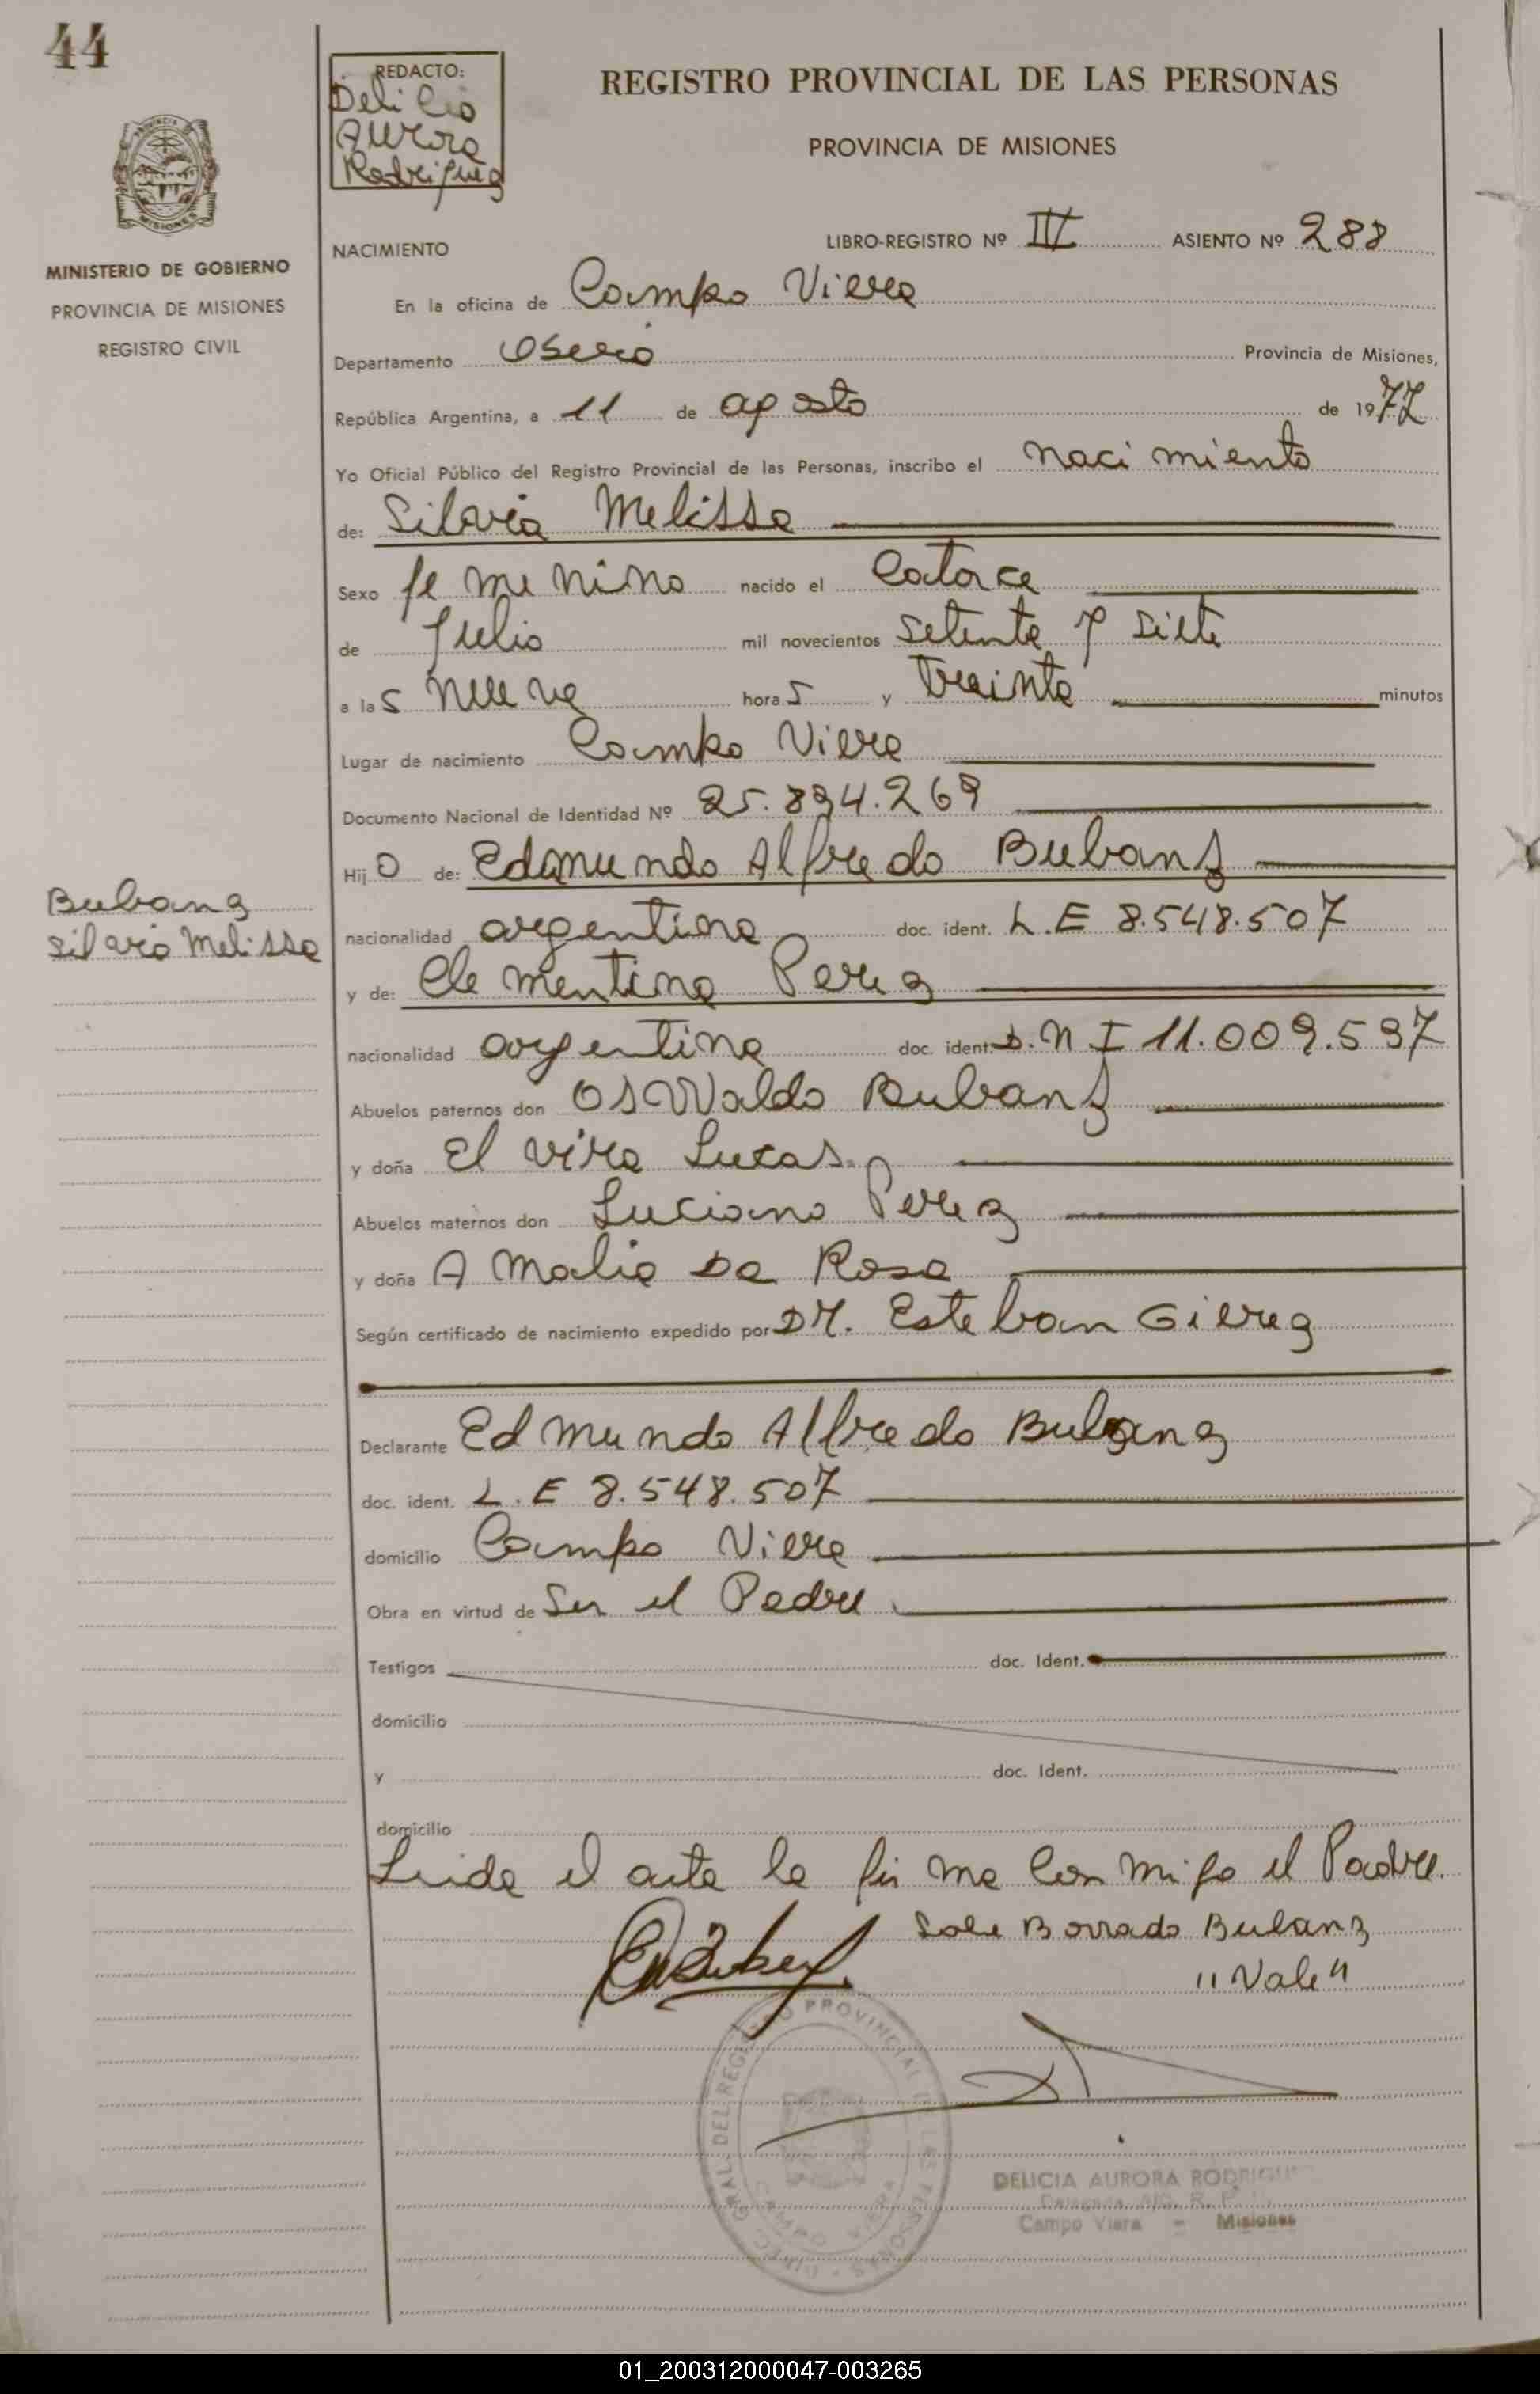 44
REDACTO:
Delicia
Aurora
Rodriguez
REGISTRO PROVINCIAL DE LAS PERSONAS
PROVINCIA DE MISIONES
MISIONES
MINISTERIO DE GOBIERNO
PROVINCIA DE MISIONES
REGISTRO CIVIL
NACIMIENTO
LIBRO-REGISTRO Nº IV ASIENTO Nº 288
En la oficina de Campo Viera
Departamento Oberá Provincia de Misiones,
República Argentina, a 11 de agosto de 1977
Yo Oficial Público del Registro Provincial de las Personas, inscribo el nacimiento
de: Silvia Melissa
Sexo femenino nacido el Catorce
de Julio mil novecientos setenta y siete
a las nueve horas y treinta minutos
Lugar de nacimiento Campo Viera
Documento Nacional de Identidad Nº 25.894.269
Hijo de: Edmundo Alfredo Bubanz
Bubanz
Silvia Melissa
nacionalidad argentina doc. ident. L.E 8.548.507
y de: Clementina Perez
nacionalidad argentina doc. ident. D.N.I 11.009.597
Abuelos paternos don Oswaldo Bubanz
y doña Elvira Lucas
Abuelos maternos don Luciano Perez
y doña Amalia Da Rosa
Según certificado de nacimiento expedido por Dr. Esteban
Declarante Edmundo Alfredo Bubanz
doc. ident. L.E 8.548.507
domicilio Campo Viera
Obra en virtud de Ser el Padre
Testigos doc. Ident.
domicilio
y doc. Ident.
domicilio
Leida el acta la firma conmigo el Padre.
Sobre Borrado Bubanz
"Vale"
DIREC. GRAL. DEL REGISTRO PROVINCIAL DE LAS PERSONAS
CAMPO VIERA
DELICIA AURORA RODRIGUEZ
Campo Viera - Misiones
01_200312000047-003265